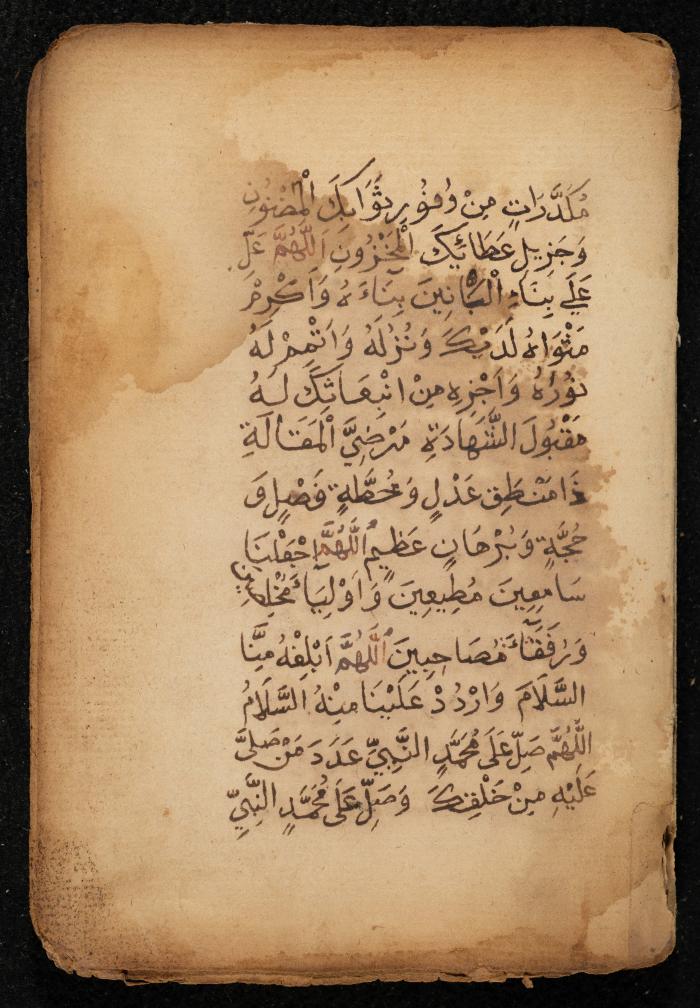 مُكَدَّرَاتٍ مِنْ وُفُورِ ثَوَابِكَ الْمَضْنُونِ
وَجَزِيلِ عَطَائِكَ الْمَخْزُونِ اَللّٰهُمَّ عَلِّ
عَلَى بِنَاءِ الْبَانِينَ بِنَاءَهُ وَاَكْرِمْ
مَثْوَاهُ لَدَيْكَ وَنُزُلَهُ وَاَتْمِمْ لَهُ
نُورَهُ وَاَجْزِهِ مِنْ انْبِعَاثِكَ لَهُ
مَقْبُولَ الشَّهَادَةِ مَرْضِيَّ الْمَقَالَةِ
ذَا مَنْطِقٍ عَدْلٍ وَخُطَّةٍ فَصْلٍ وَ
حُجَّةٍ وَبُرْهَانٍ عَظِيمٍ اَللّٰهُمَّ اجْعَلْنَا
سَامِعِينَ مُطِيعِينَ وَاَوْلِيَاءَ مُخْلِصِينَ
وَرُفَقَاءَ مُصَاحِبِينَ اَللّٰهُمَّ اَبْلِغْهُ مِنَّا
السَّلَامَ وَارْدُدْ عَلَيْنَا مِنْهُ السَّلَامُ
اللّٰهُمَّ صَلِّ عَلَى مُحَمَّدٍ النَّبِيِّ عَدَدَ مَنْ صَلَّى
عَلَيْهِ مِنْ خَلْقِكَ وَصَلِّ عَلَى مُحَمَّدٍ النَّبِيِّ